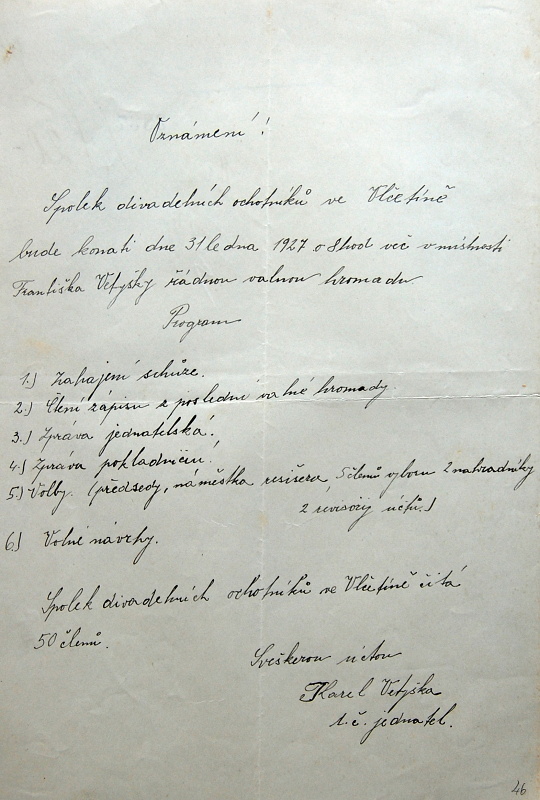 Oznámení!
Spolek divadelních ochotníků ve Vlčetíně
bude konati dne 31 ledna 1927 o 8 hod več v místnosti
Františka Vetyšky řádnou valnou hromadu
Program
1.) Zahajení schůze.
2.) Čtení zápisu z poslední valné hromady.
3.) Zpráva jednatelská.
4.) Zpráva pokladničin.
5.) Volby. (předsedy, náměstka resišera, 5 členů vyboru 2 nahradníky
2 revisory účtů.)
6.) Volné návrhy.
Spolek divadelních ochotníků ve Vlčetíně čítá
50 členů.
Sveškerou úctou
Karel Vetyška
t.č. jednatel.
46